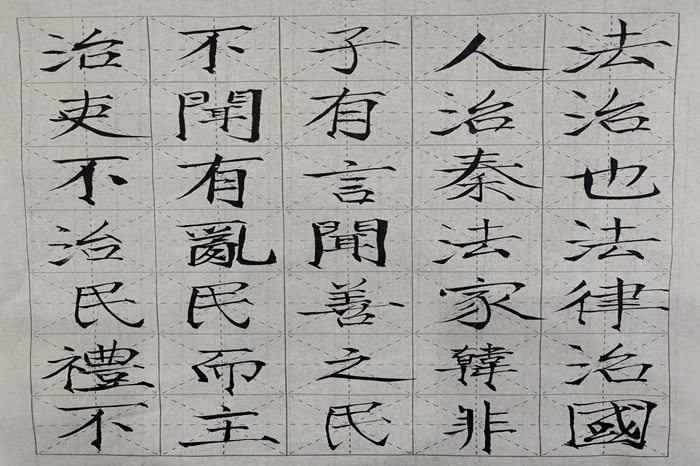 法治也法律治國
人治秦法家韓非
子有言聞善之民
不聞有亂民而主
治吏不治民禮不